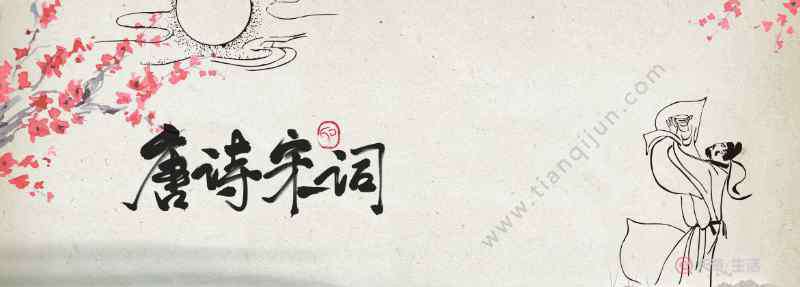 唐诗宋词
www.tianqijun.com
生活